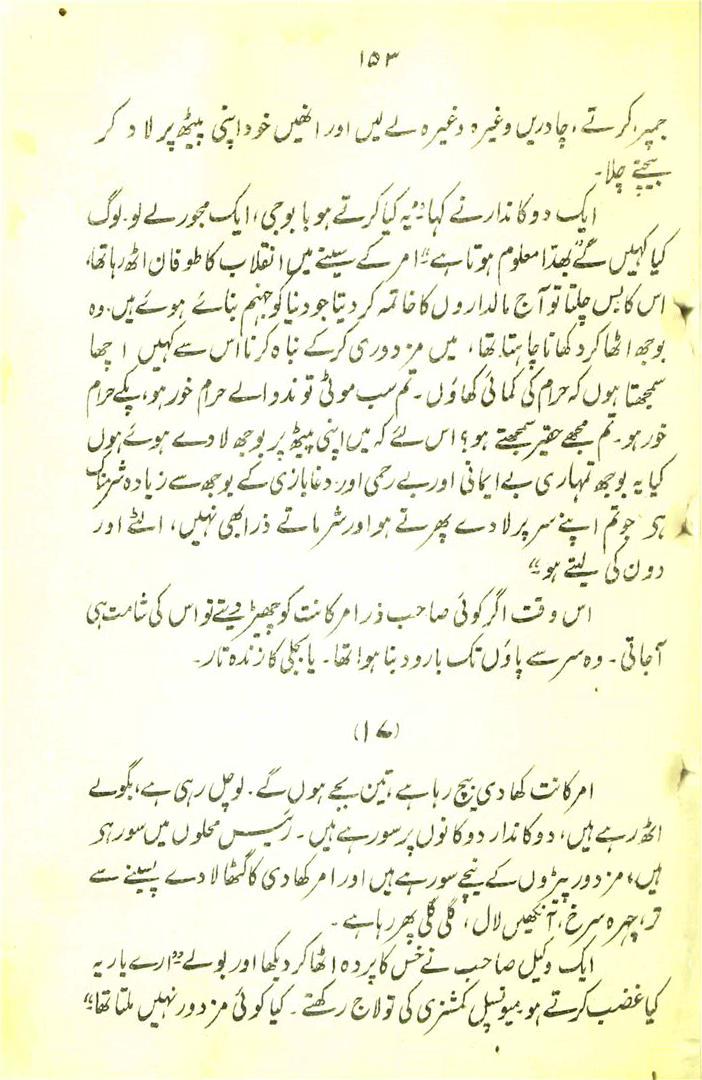 ۱۵۳
جمپر، کرتے، چادریں وغیرہ وغیرہ لے لیں اور انھیں خود اپنی پیٹھ پر لاد کر
بیچنے چلا۔
ایک دوکاندار نے کہا "یہ کیا کرتے ہو بابوجی، ایک مجور لے لو۔ لوگ
کیا کہیں گے بھدّا معلوم ہوتا ہے" امر کے سینے میں انقلاب کا طوفان اٹھ رہا تھا،
اس کا بس چلتا تو آج مالداروں کا خاتمہ کر دیتا جو دنیا کو جہنم بنائے ہوئے ہیں۔ وہ
بوجھ اٹھا کر دکھانا چاہتا تھا، میں مزدوری کرکے نباہ کرنا اس سے کہیں اچھا
سمجھتا ہوں کہ حرام کی کمائی کھاؤں۔ تم سب موٹی توند والے حرام خور ہو، پکے حرام
خور ہو۔ تم مجھے حقیر سمجھتے ہو؟ اس لئے کہ میں اپنی پیٹھ پر بوجھ لادے ہوئے ہوں
کیا یہ بوجھ تمہاری بے ایمانی اور بے رحمی اور دغابازی کے بوجھ سے زیادہ شرمناک
ہے جو تم اپنے سر پر لادے پھرتے ہو اور شرماتے ذرا بھی نہیں، الٹے اور
دون کی لیتے ہو"
اس وقت اگر کوئی صاحب ذر امرکانت کو چھیڑ دیتے تو اس کی شامت ہی
آجاتی۔ وہ سر سے پاؤں تک بارود بنا ہوا تھا۔ یا بجلی کا زندہ تار۔
(۱۷)
امرکانت کھادی بیچ رہا ہے، تین بجے ہوں گے۔ لو چل رہی ہے، بگولے
اٹھ رہے ہیں، دوکاندار دوکانوں پر سو رہے ہیں۔ رئیس محلوں میں سو رہے
ہیں، مزدور پیڑوں کے نیچے سو رہے ہیں اور امر کھادی کا گٹھا لادے پسینے سے
تر، چہرہ سرخ، آنکھیں لال، گلی گلی پھر رہا ہے۔
ایک وکیل صاحب نے خس کا پردہ اٹھا کر دیکھا اور بولے "ارے یار یہ
کیا غضب کرتے ہو میونسپل کمشنری کی تو لاج رکھتے۔ کیا کوئی مزدور نہیں ملتا تھا"